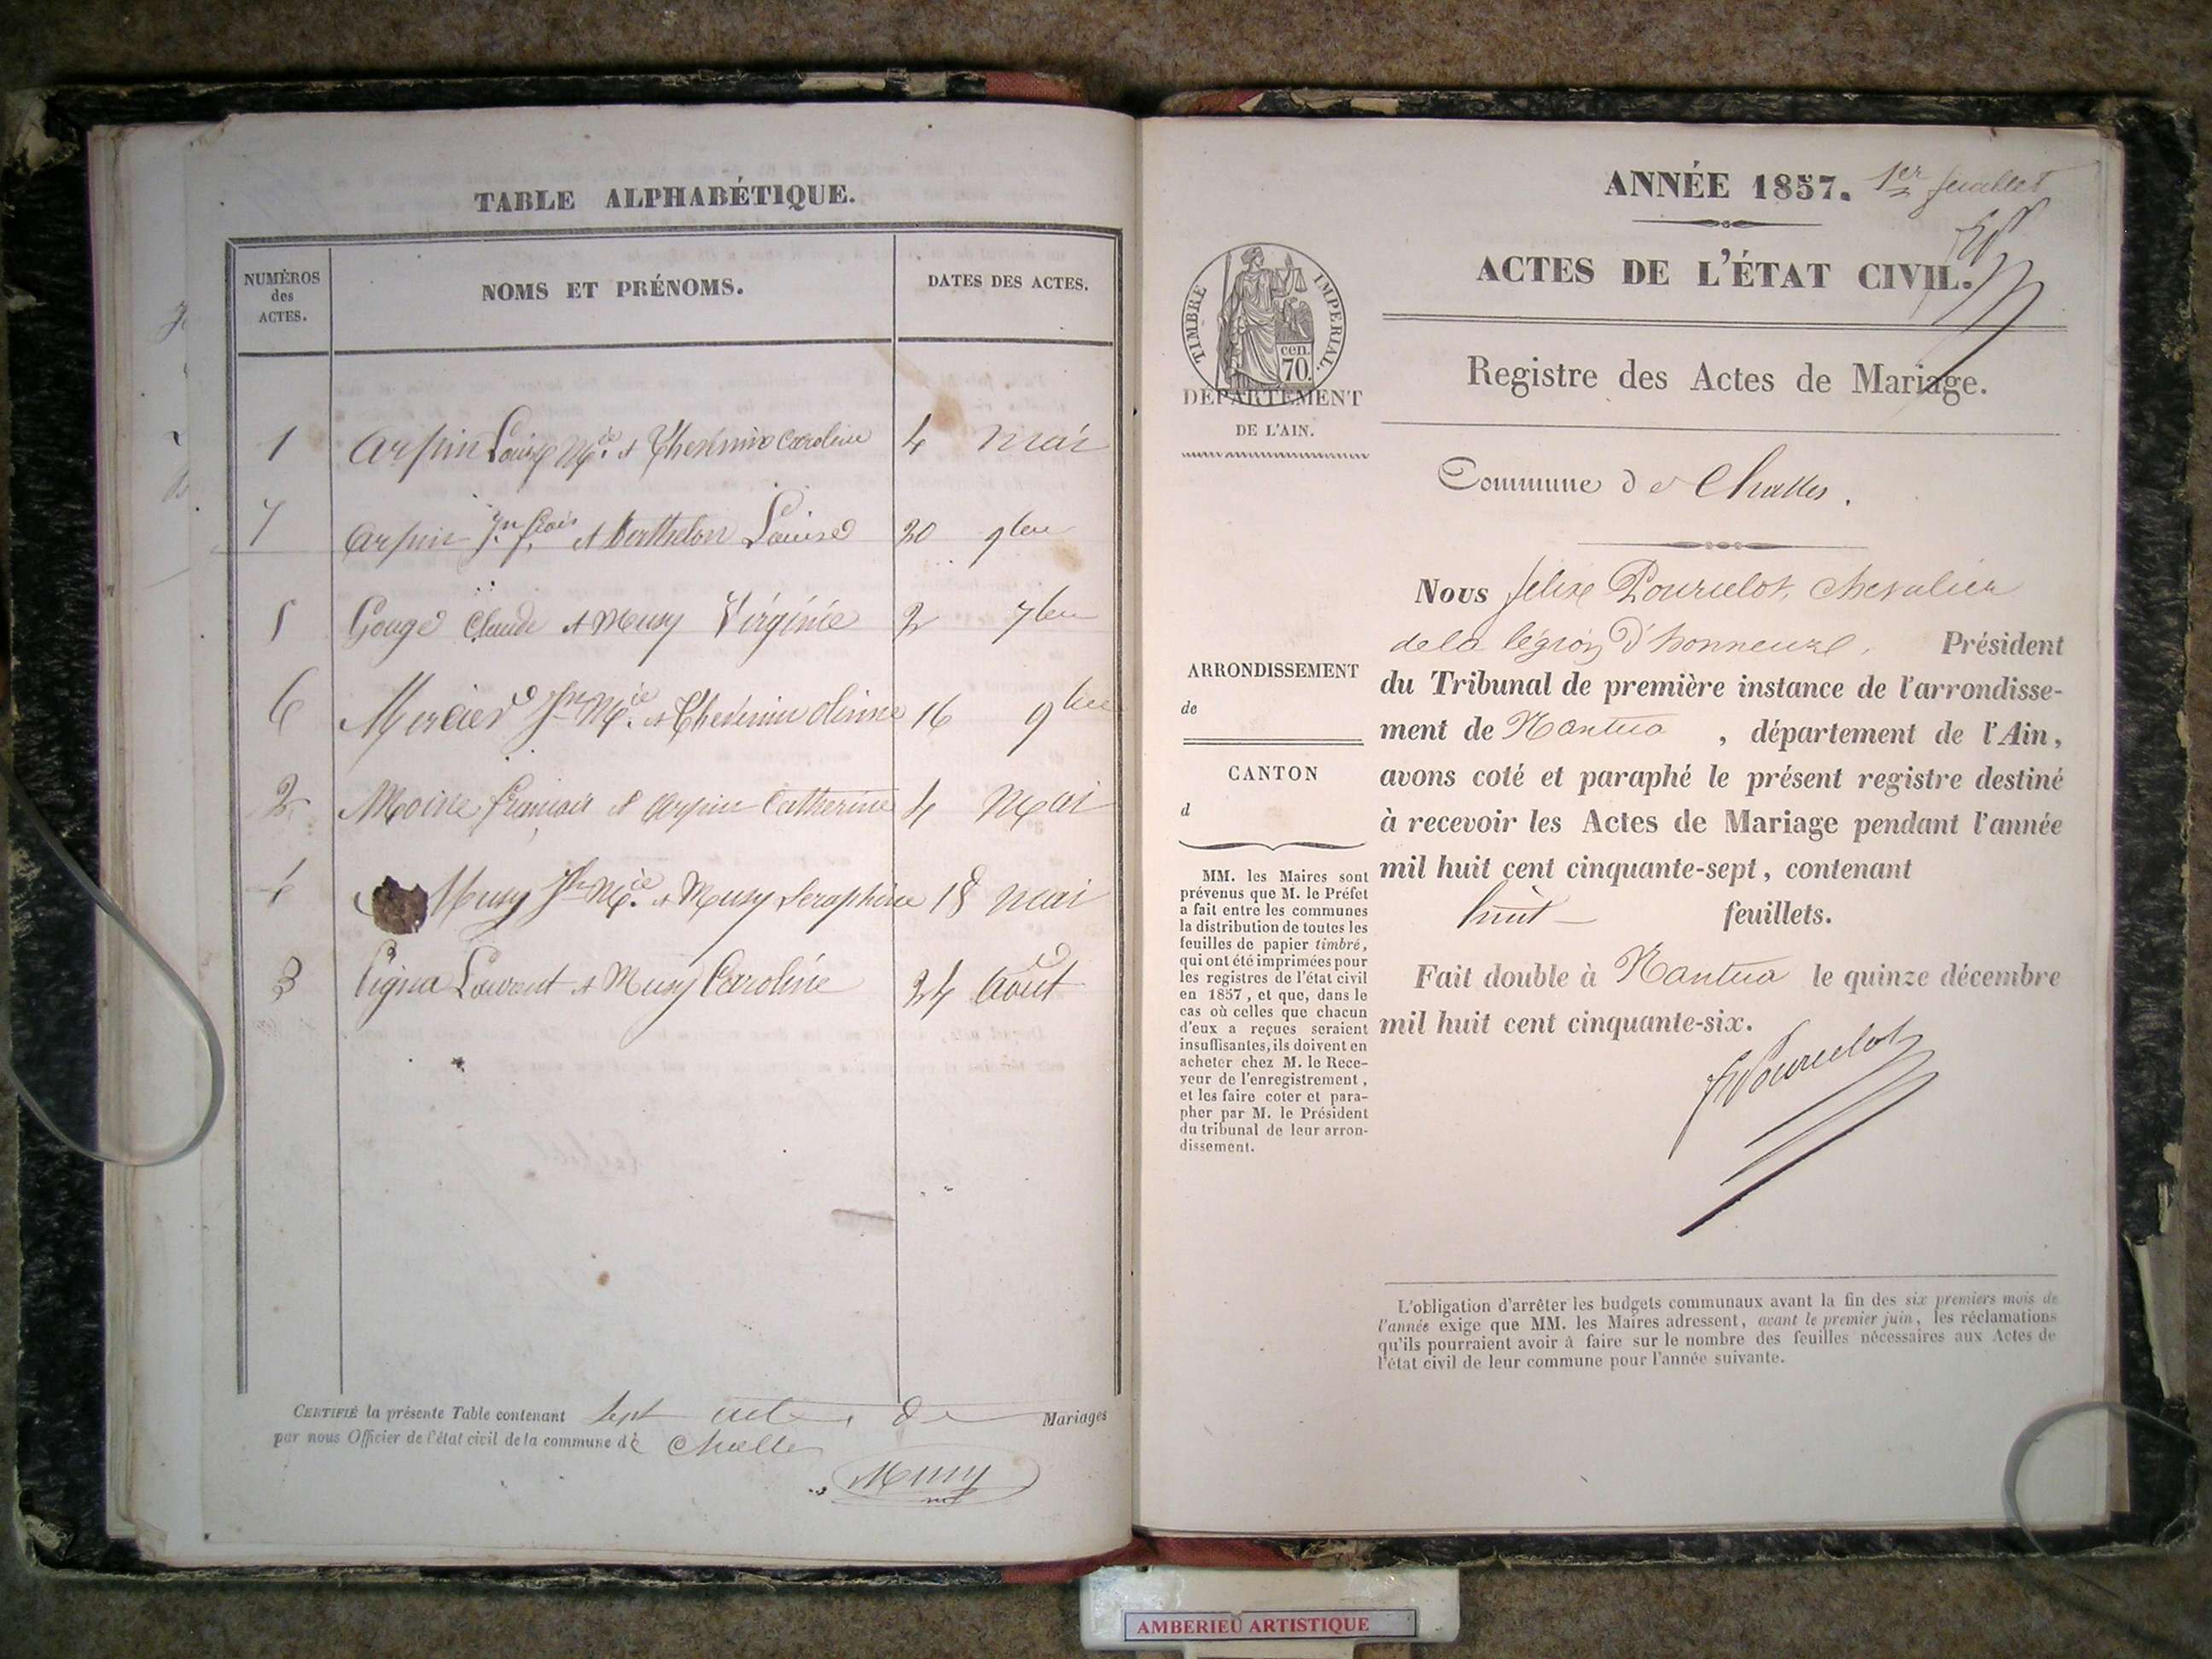 TABLE ALPHABÉTIQUE.
NUMÉROS
des
ACTES.
NOMS ET PRÉNOMS.
DATES DES ACTES.
1 Arpin Louise Mie et Thevenin Caroline 4 mai
7 Arpin Jn fçois et Berthelon Louise 20 9bre
5 Gouge Claude et Musy Virginie 2 7bre
6 Mercier Jh Mie et Thevenin 16 9bre
2 Moine françois et Arpin Catherine 4 Mai
4 Musy Jh Mie et Musy Seraphine 18 mai
3 Laurent et Musy Caroline 24 Août
CERTIFIÉ la présente Table contenant Sept actes de Mariages
par nous Officier de l'état civil de la commune de Challes
Musy
ANNÉE 1857. 1er feuillet
ACTES DE L'ÉTAT CIVIL.
TIMBRE IMPERIAL.
cen.
70.
DÉPARTEMENT
DE L'AIN.
Registre des Actes de Mariage.
Commune de Challes.
Nous félix Pourcelot, chevalier
de la légion d'honneur, Président
du Tribunal de première instance de l'arrondisse-
ment de Nantua, département de l'Ain,
avons coté et paraphé le présent registre destiné
à recevoir les Actes de Mariage pendant l'année
mil huit cent cinquante-sept, contenant
huit feuillets.
Fait double à Nantua le quinze décembre
mil huit cent cinquante-six.
FPourcelot
ARRONDISSEMENT
de
CANTON
d
MM. les Maires sont
prévenus que M. le Préfet
a fait entre les communes
la distribution de toutes les
feuilles de papier timbré,
qui ont été imprimées pour
les registres de l'état civil
en 1857, et que, dans le
cas où celles que chacun
d'eux a reçues seraient
insuffisantes, ils doivent en
acheter chez M. le Rece-
veur de l'enregistrement,
et les faire coter et para-
pher par M. le Président
du tribunal de leur arron-
dissement.
L'obligation d'arrêter les budgets communaux avant la fin des six premiers mois de
l'année exige que MM. les Maires adressent, avant le premier juin, les réclamations
qu'ils pourraient avoir à faire sur le nombre des feuilles nécessaires aux Actes de
l'état civil de leur commune pour l'année suivante.
AMBERIEU ARTISTIQUE